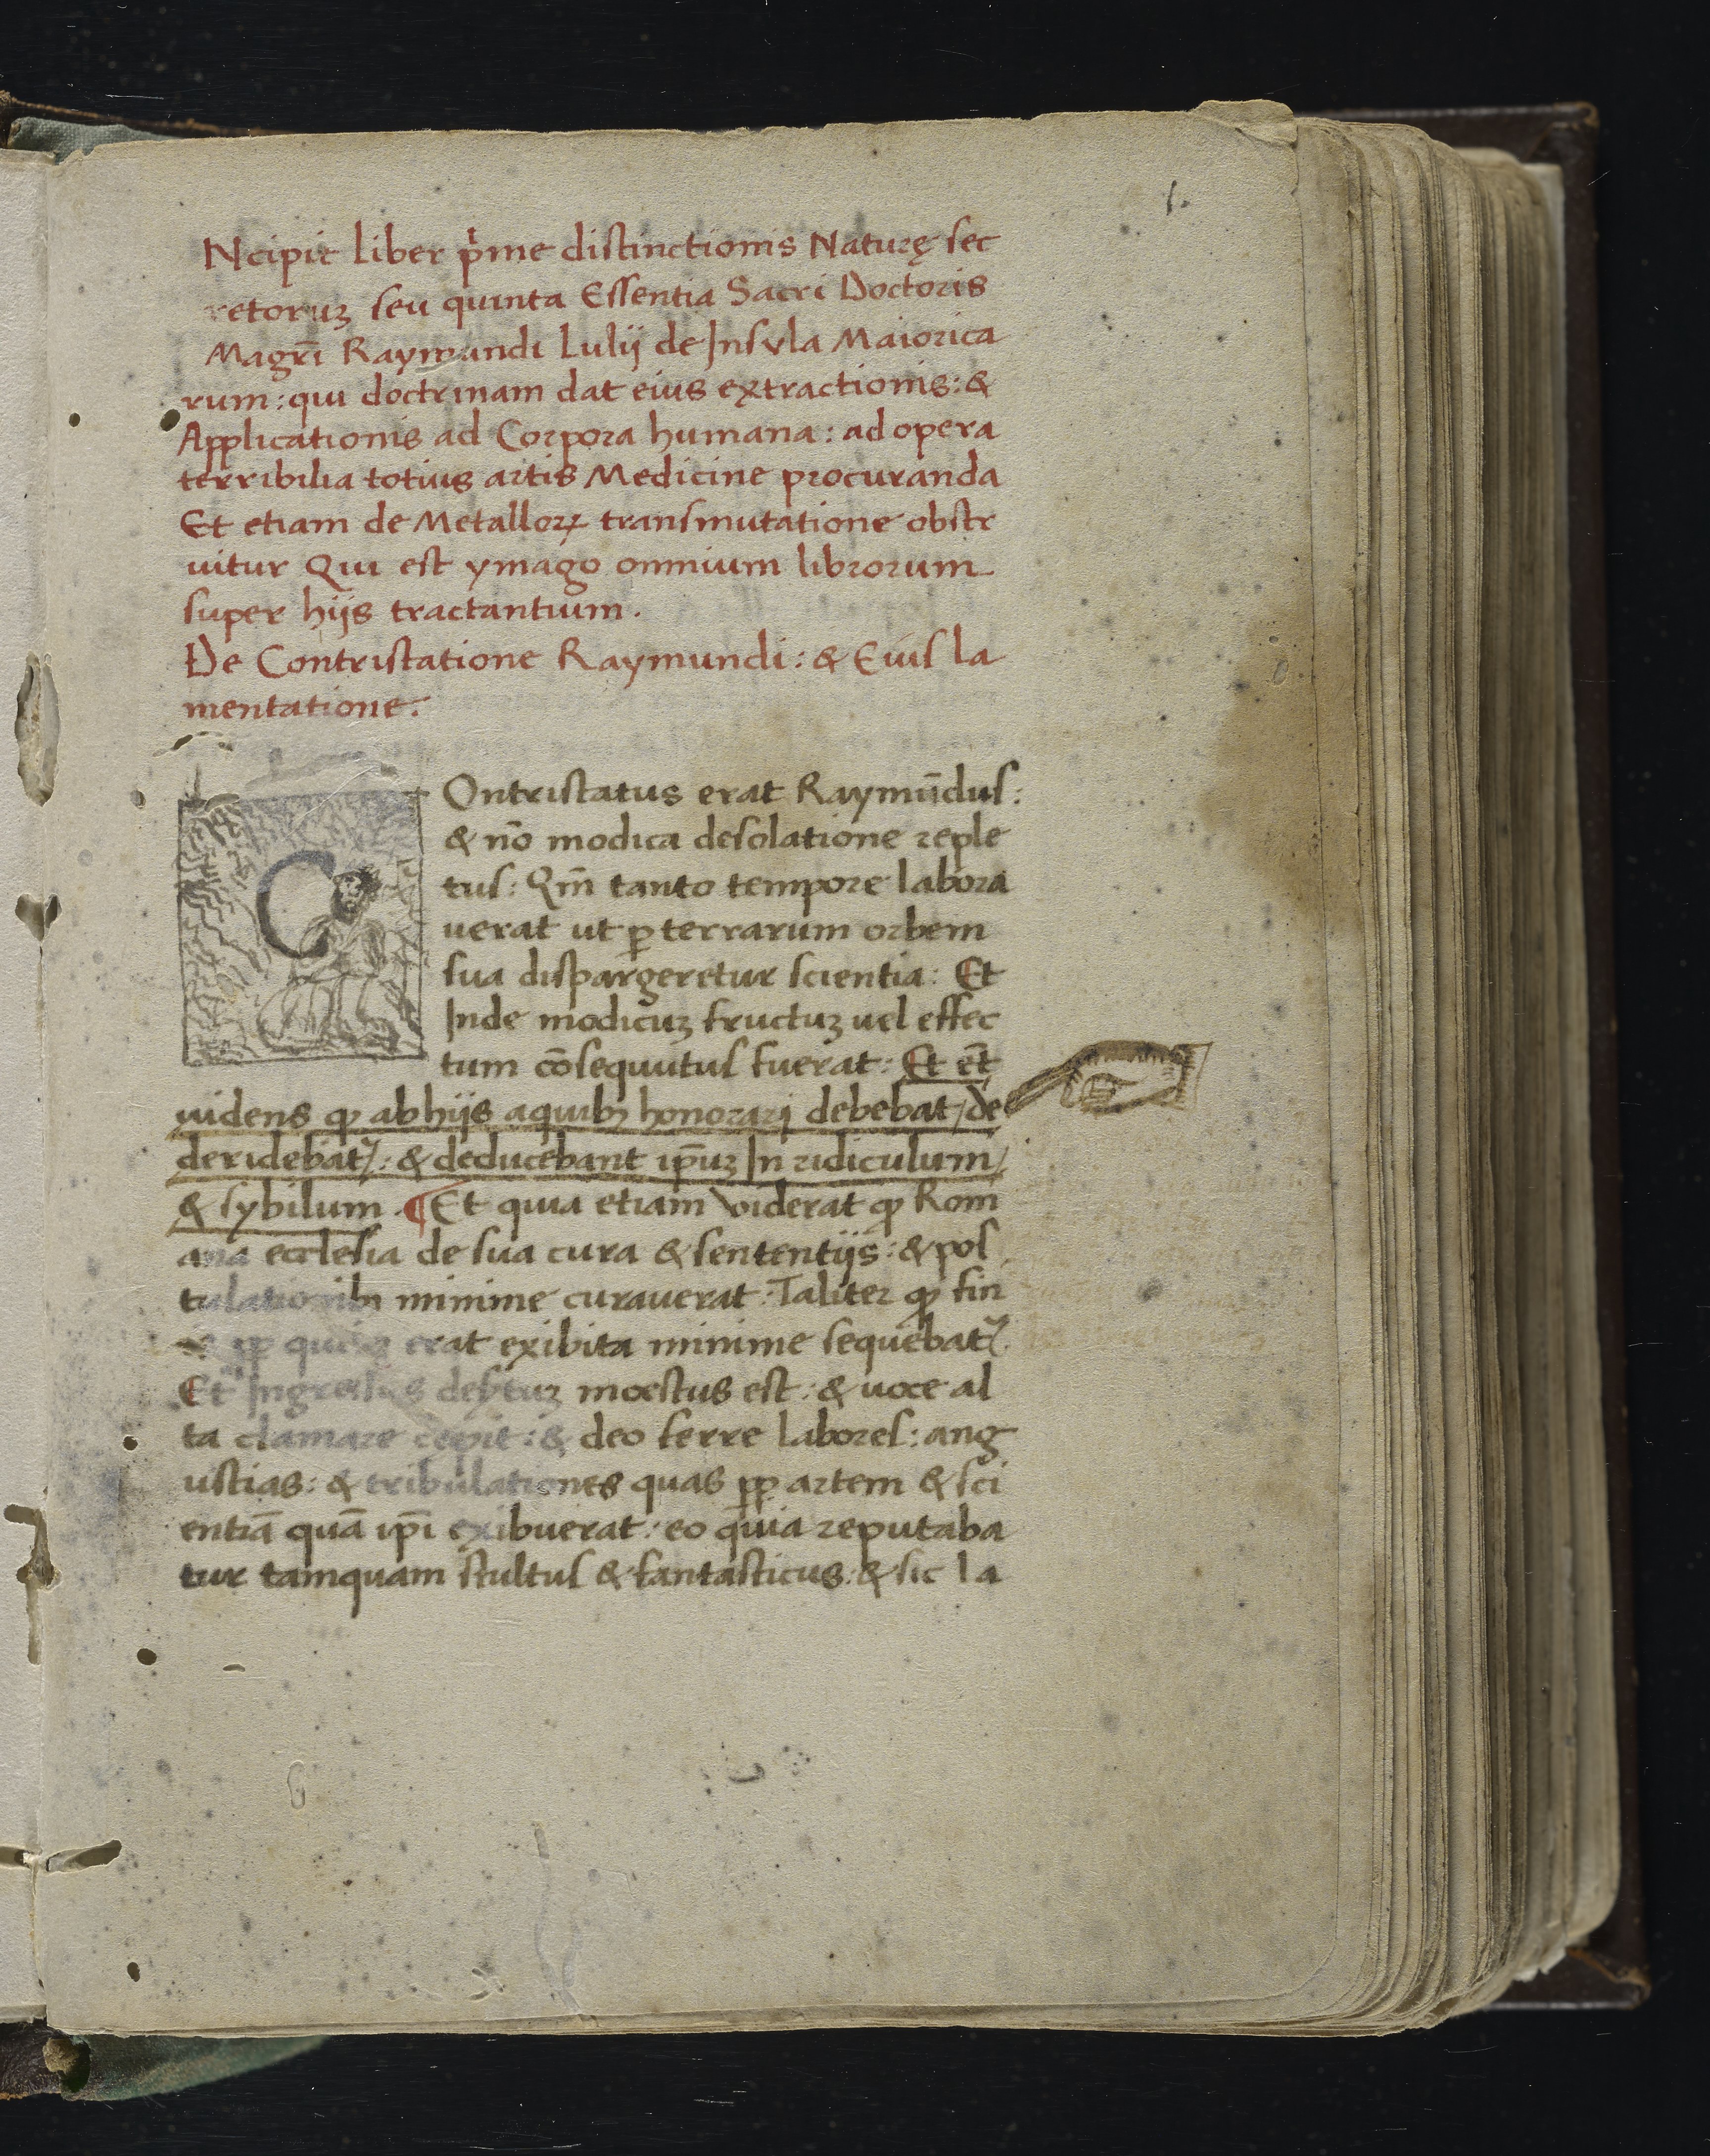 1.
Ncipit liber p̄me distinctionis Naturę sec
retoruꝫ seu quinta Essentia Sacri Doctoris
Magr̄i Raymundi Lulij de Insula Maiorica
rum: qui doctrinam dat eius extractionis: &
Applicationis ad Corpora humana: ad opera
terribilia totius artis Medicine procuranda
Et etiam de Metalloꝝ transmutatione obstr
uitur Qui est ymago omnium librorum
super hijs tractantium.
De Contristatione Raymundi: & Eius la
mentatione:
C Ontristatus erat Raymūdus:
& nō modica desolatione reple
tus: Qm̄ tanto tempore labora
uerat ut ꝑ terrarum orbem
sua dispargeretur scientia: Et
Inde modicuꝫ fructuꝫ uel effec
tum cōsequutus fuerat: Et et̄
uidens ꝙ ab hijs a quibꝫ honorari debebat / de
deridebat᷑: & deducebant ip̄uꝫ In ridiculum /
& sybilum. ¶ Et quia etiam viderat ꝙ Rom
ana ecclesia de sua cura & sententijs: & pos
tulationibꝫ minime curauerat: Taliter ꝙ fin
erat exibita minime sequebat᷑.
Et Ingressus moestus est: & uoce al
ta clamare cepit: & deo ferre labores: ang
ustias: & tribulationes quas ꝓp artem & sci
entiā quā ip̄i exibuerat: eo quia reputaba
tur tamquam stultus & fantasticus: & sic la